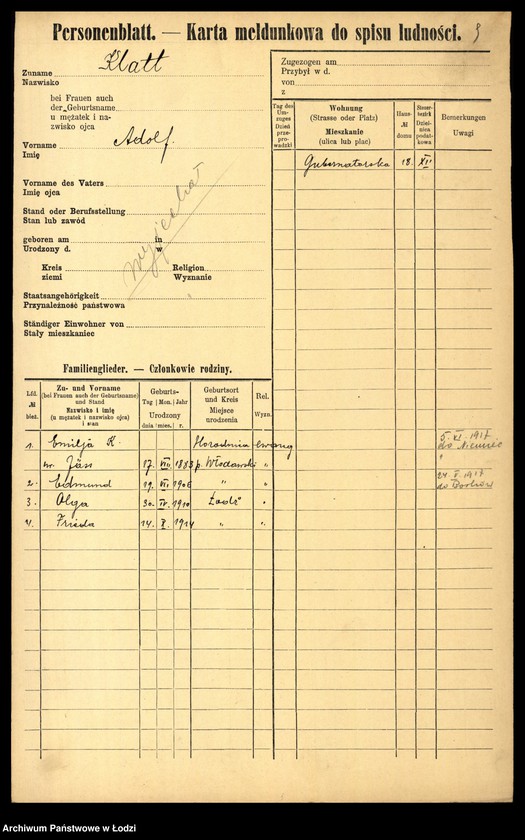 Personenblatt. — Karta meldunkowa do spisu ludności.
Zuname Klatt
Nazwisko
bei Frauen auch
der „Geburtsname
u mężatek i na-
zwisko ojca
Vorname Adolf.
Imię
Vorname des Vaters
Imię ojca
Stand oder Berufsstellung
Stan lub zawód
geboren am in
Urodzony d. w
Kreis Religion
ziemi Wyznanie
Staatsangehörigkeit
Przynależność państwowa
Ständiger Einwohner von
Stały mieszkaniec
wyjechał
Zugezogen am
Przybył w d.
von
z
Tag des Um-zuges Dzień prze-prowadzki
Wohnung (Strasse oder Platz) Mieszkanie (ulica lub plac)
Haus-№ domu
Steuer-bezirk Dzielnica podatkowa
Bemerkungen Uwagi
Gubernatorska 18. XII
Familienglieder. — Członkowie rodziny.
Lfd. № bież.
Zu- und Vorname (bei Frauen auch der Geburtsname) und Stand Nazwisko i imię (u mężatek i nazwisko ojca) i stan
Geburts- Tag Mon. Jahr Urodzony dnia mies. r.
Geburtsort und Kreis Miejsce urodzenia
Rel. Wyzn.
1. Emilja K. Horodnia ewang 5. XI. 1917 do Niemiec
17. VII. 1883 p. Włodawski „ „
2. Edmund 19. VII 1906 „ „ 24. V. 1917
3. Olga 30. IV. 1910 Łódź „
4. Frieda 14. X. 1914 „ „
Archiwum Państwowe w Łodzi